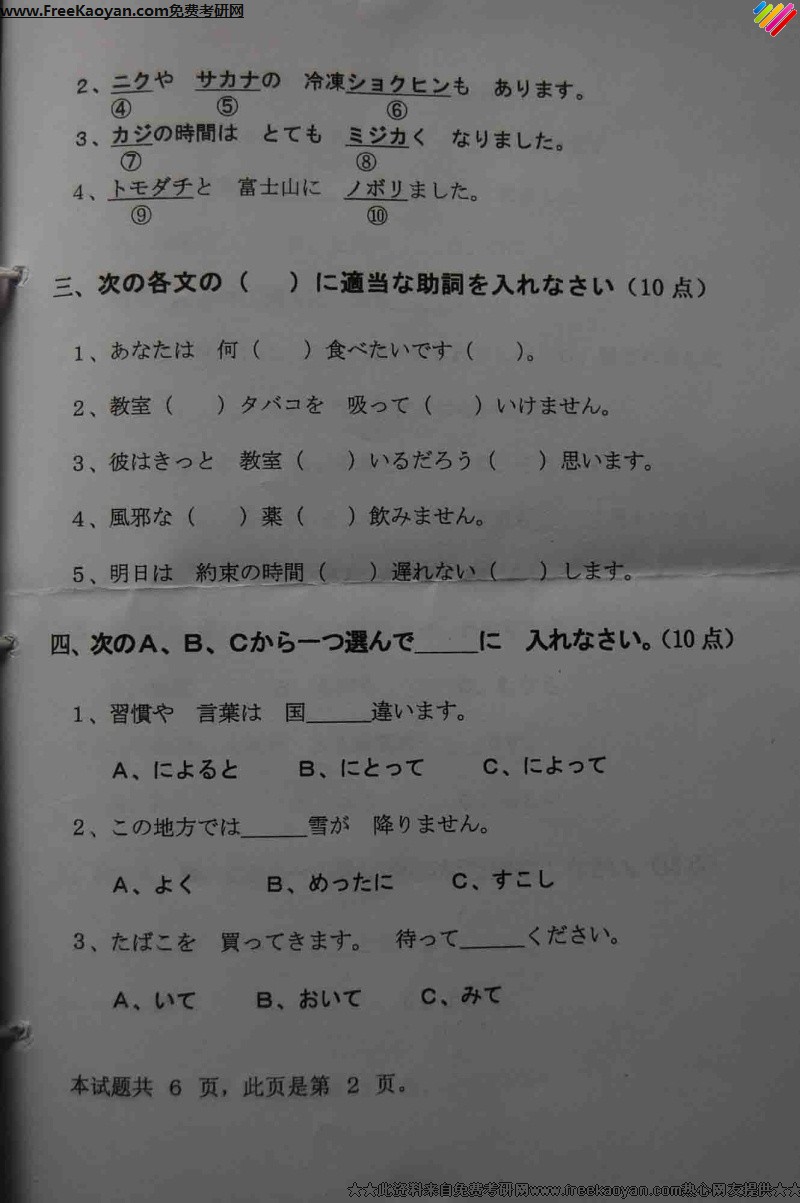 www.FreeKaoyan.com免费考研网
2、ニクや　サカナの　冷凍ショクヒンも　あります。
④　⑤　⑥
3、カジの時間は　とても　ミジカく　なりました。
⑦　⑧
4、トモダチと　富士山に　ノボリました。
⑨　⑩
三、次の各文の（　）に適当な助詞を入れなさい（10点）
1、あなたは　何（　）食べたいです（　）。
2、教室（　）タバコを　吸って（　）いけません。
3、彼はきっと　教室（　）いるだろう（　）思います。
4、風邪な（　）薬（　）飲みません。
5、明日は　約束の時間（　）遅れない（　）します。
四、次のA、B、Cから一つ選んで_____に　入れなさい。（10点）
1、習慣や　言葉は　国_____違います。
A、によると　B、にとって　C、によって
2、この地方では_____雪が　降りません。
A、よく　B、めったに　C、すこし
3、たばこを　買ってきます。　待って_____ください。
A、いて　B、おいて　C、みて
本试题共 6 页，此页是第 2 页。
☆☆此资料来自免费考研网www.freekaoyan.com热心网友提供☆☆